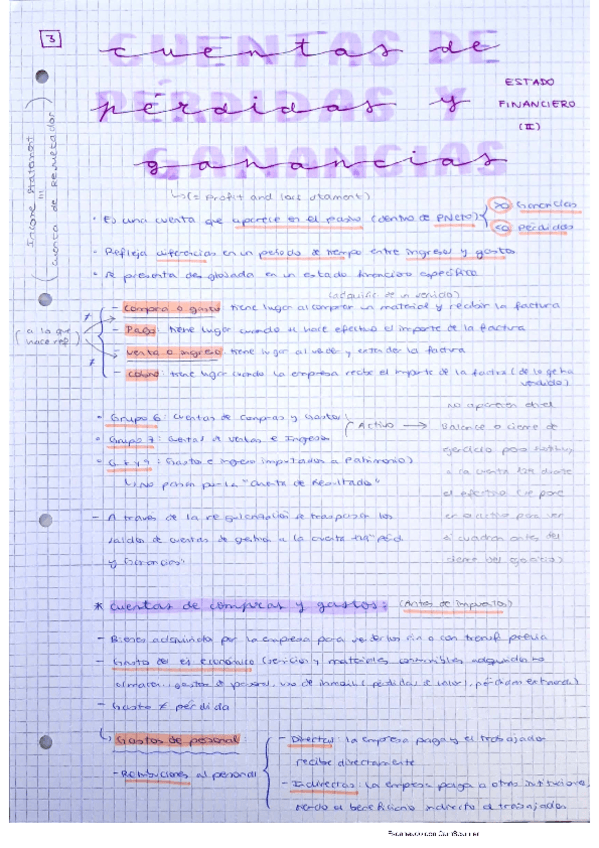 3
cuentas de
pérdidas y
ganancias
ESTADO
FINANCIERO
(II)
Income Statement
cuenta de resultados
(= Profit and loss stament)
• Es una cuenta que aparece en el pasivo (dentro de PNeto) >0 Ganancias
<0 Pérdidas
• Refleja diferencias en un periodo de tiempo entre ingresos y gastos
• Se presenta desglosada en un estado financiero específico
(a la que
hace ref)
- Compra o gasto: tiene lugar al comprar un material y recibir la factura
- Pago: tiene lugar cuando se hace efectivo el importe de la factura
- Venta o ingreso: tiene lugar al vender y extender la factura
- Cobro: tiene lugar cuando la empresa recibe el importe de la factura (de lo que ha
vendido)
• Grupo 6: Cuentas de Compras y Gastos
• Grupo 7: de Ventas e Ingresos
Gasto e ingreso imputados a Patrimonio)
↳ No pasan por la "Cuenta de Resultado"
(Activo →
no aparecen en el
Balance a cierre de
ejercicio
a la cuenta 129 donde
el efectivo
en activo para ver
si cuadran antes del
cierre del ejercicio)
- A través de la regularización se traspasan los
saldos de cuentas de gestión a la cuenta
y Ganancias"
* cuentas de compras y gastos: (Antes de Impuestos)
- Bienes adquiridos por la empresa para venderlos sin o con transf previa
- Gasto del ej económico (servicios y materiales consumibles adquiridos no
gastos de personal, pérdidas de valor),
- Gasto ≠ pérdida
↳ Gastos de personal
- Retribuciones al personal
- Directas: la empresa paga y el trabajador
recibe directamente
- Indirectas: la empresa paga a otras instituciones,
siendo el beneficiario indirecto el trabajador